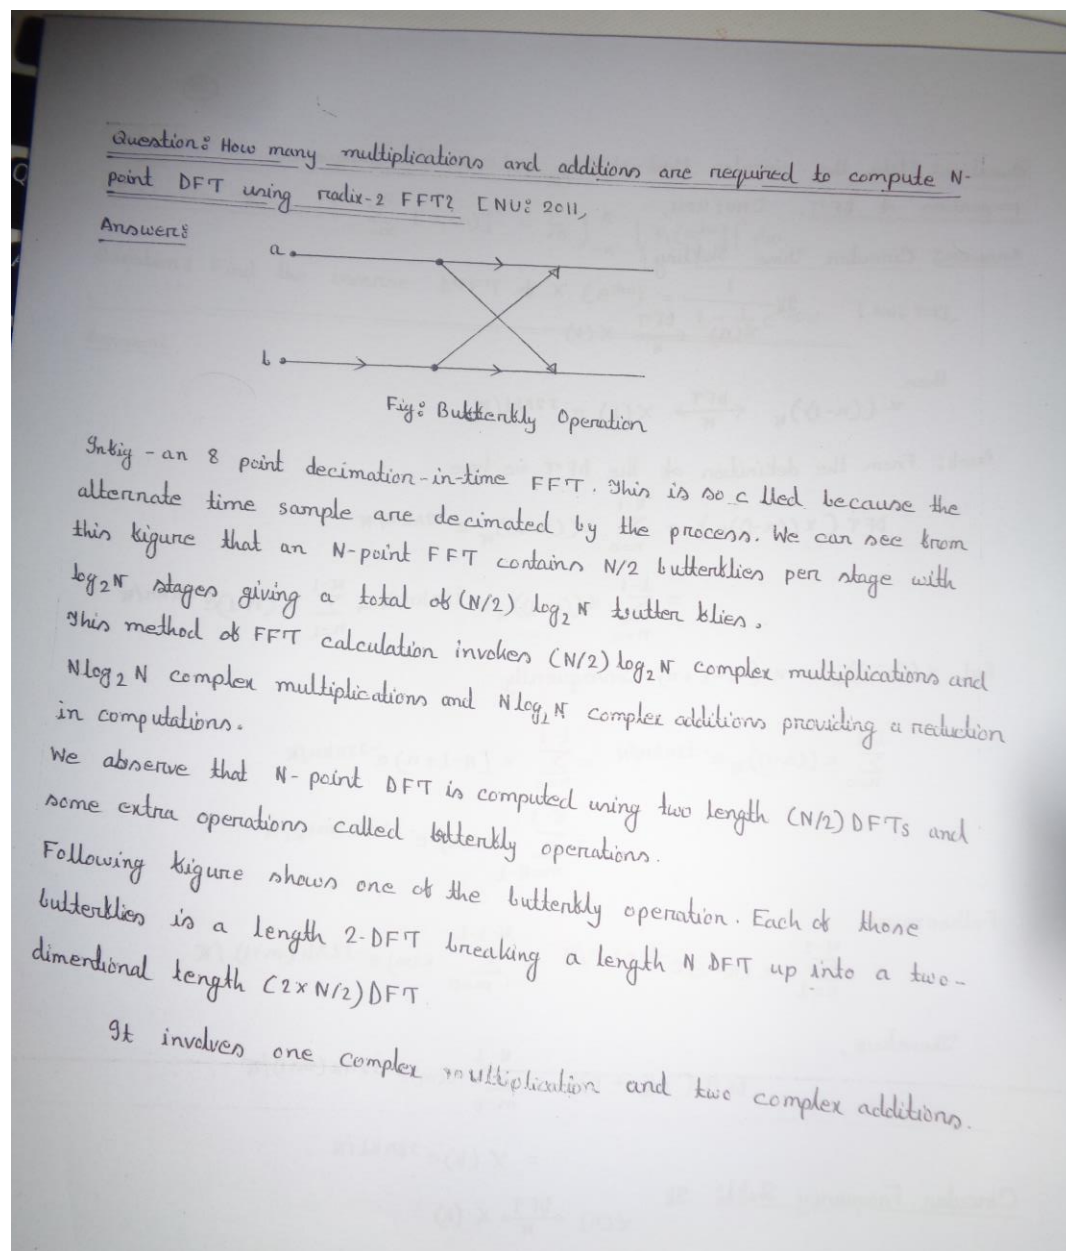 Question: How many multiplications and additions are required to compute N-
point DFT using radix-2 FFT? [NU: 2011,
Answer:
a
b
Fig: Butterfly Operation
Infig - an 8 point decimation-in-time FFT. This is so c lled because the
alternate time sample are decimated by the process. We can see from
this figure that an N-point FFT contains N/2 butterflies per stage with
log₂N stages giving a total of (N/2) log₂N butter flies.
This method of FFT calculation invokes (N/2) log₂N complex multiplications and
N log₂N complex multiplications and N log₂N complex additions providing a reduction
in computations.
We observe that N-point DFT is computed using two length (N/2) DFTs and
some extra operations called butterfly operations.
Following figure shows one of the butterfly operation. Each of those
butterflies is a length 2-DFT breaking a length N DFT up into a two-
dimentional length (2×N/2) DFT
It involves one complex multiplication and two complex additions.